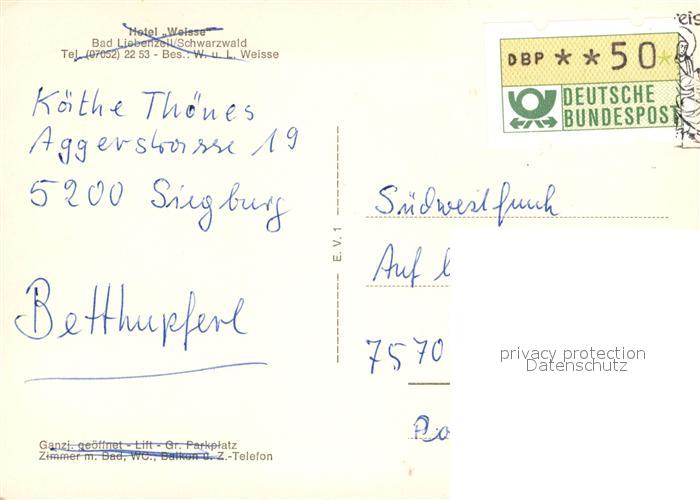 Hotel „Weisse"
Bad Liebenzell/Schwarzwald
Tel. (07052) 22 53 - Bes.: W. u. L. Weisse
Käthe Thönes
Aggerstrasse 19
5200 Siegburg
Betthupferl
Ganzj. geöffnet - Lift - Gr. Parkplatz
Zimmer m. Bad, WC, Balkon u. Z.-Telefon
E. V. 1
DBP **50*
DEUTSCHE
BUNDESPOST
Südwestfunk
Auf
7570
privacy protection
Datenschutz